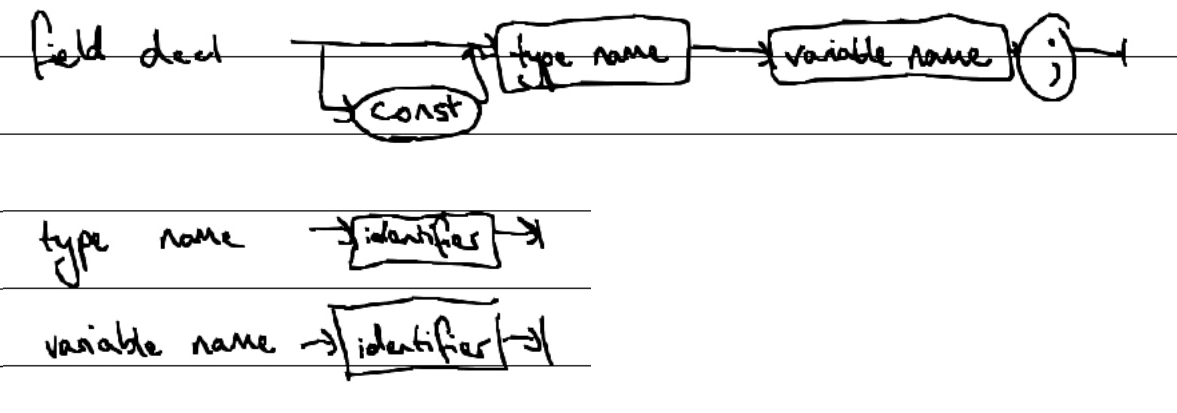 field decl const type name variable name ;
type name identifier
variable name identifier